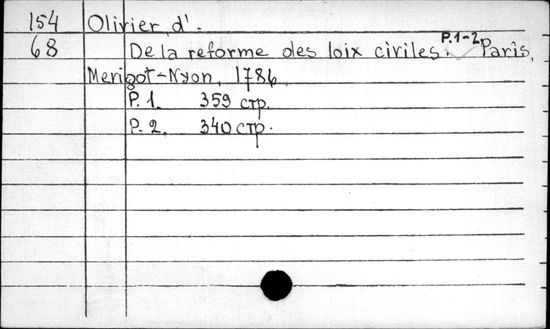 154 Olivier, d'.
68 De la reforme des loix civiles. P.1-2. Paris,
Merigot-Nyon, 1786.
P. 1. 359 стр.
P. 2. 340 стр.